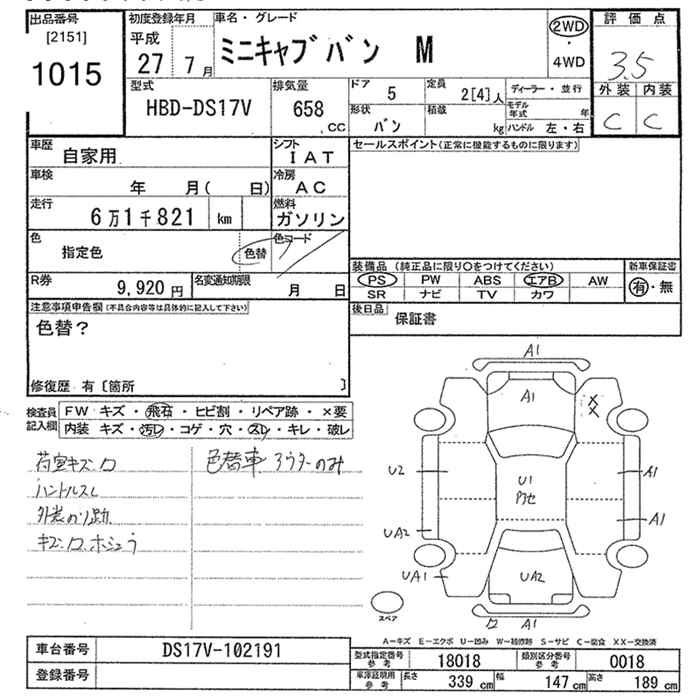 出品番号 初度登録年月 車名・グレード 評価点
[2151] 平成 ミニキャブ バン M 2WD・4WD 3.5
1015 27 7月 外装 内装
C C
型式 排気量 ドア 5 定員 2[4]人 ディーラー・並行
HBD-DS17V 658 cc 形状 バン 積載 kg モデル年式 年
ハンドル 左・右
車歴 自家用 シフト IAT セールスポイント(正常に機能するものに限ります)
車検 年 月( 日) 冷房 AC
走行 6万1千821 km 燃料 ガソリン
色 指定色 色替 色コード
装備品 (純正品に限り○をつけてください) 新車保証書
R券 9,920円 名変通知期限 月 日 PS PW ABS エアB AW 有・無
SR ナビ TV カワ
注意事項申告欄(不具合内容等は具体的に記入して下さい) 後日品 保証書
色替?
修復歴 有〔箇所 〕
検査員 FW キズ・飛石・ヒビ割・リペア跡・×要
記入欄 内装 キズ・汚レ・コゲ・穴・スレ・キレ・破レ
荷室キズ ワ 色替車 アウターのみ
ハンドルスレ
外装のり跡
キズ.ワ.ホシュウ
A1
A1
X
X
U2 U1 A1
A1
UA2
UA1 UA2
スペア
ワ A1
A－キズ E－エクボ U－凹み W－補修跡 S－サビ C－腐食 XX－交換済
車台番号 DS17V-102191 型式指定番号 参考 18018 類別区分番号 参考 0018
登録番号 車庫証明用 参考 長さ 339 cm 幅 147 cm 高さ 189 cm